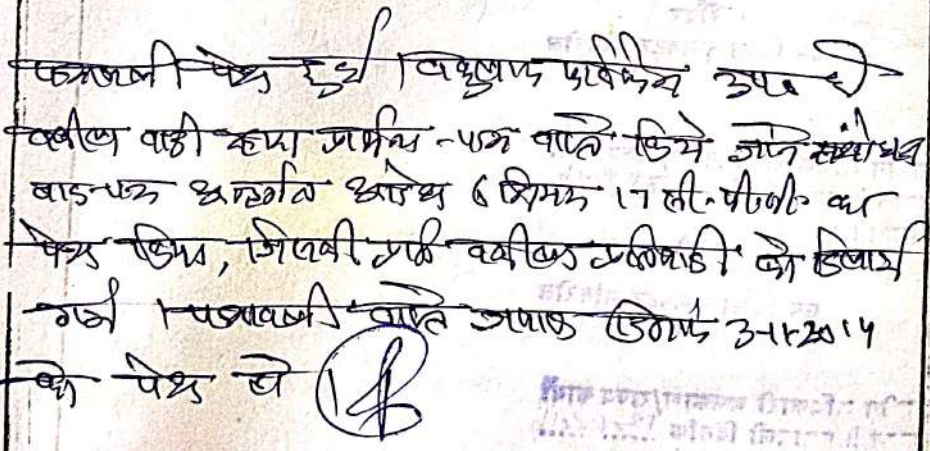 पत्रावली पेश हुई । वकुलाय फरीकैन उप० है
वकील वादी द्वारा प्रार्थना-पत्र वास्ते किये जाने संशोधन
वाद-पत्र अन्तर्गत आदेश 6 नियम 17 सी.पी.सी. का
पेश किया, जिसकी प्रति वकील प्रतिवादी को दिलायी
गयी । पत्रावली वास्ते जवाब दिनांक 3-11-2014
को पेश हो